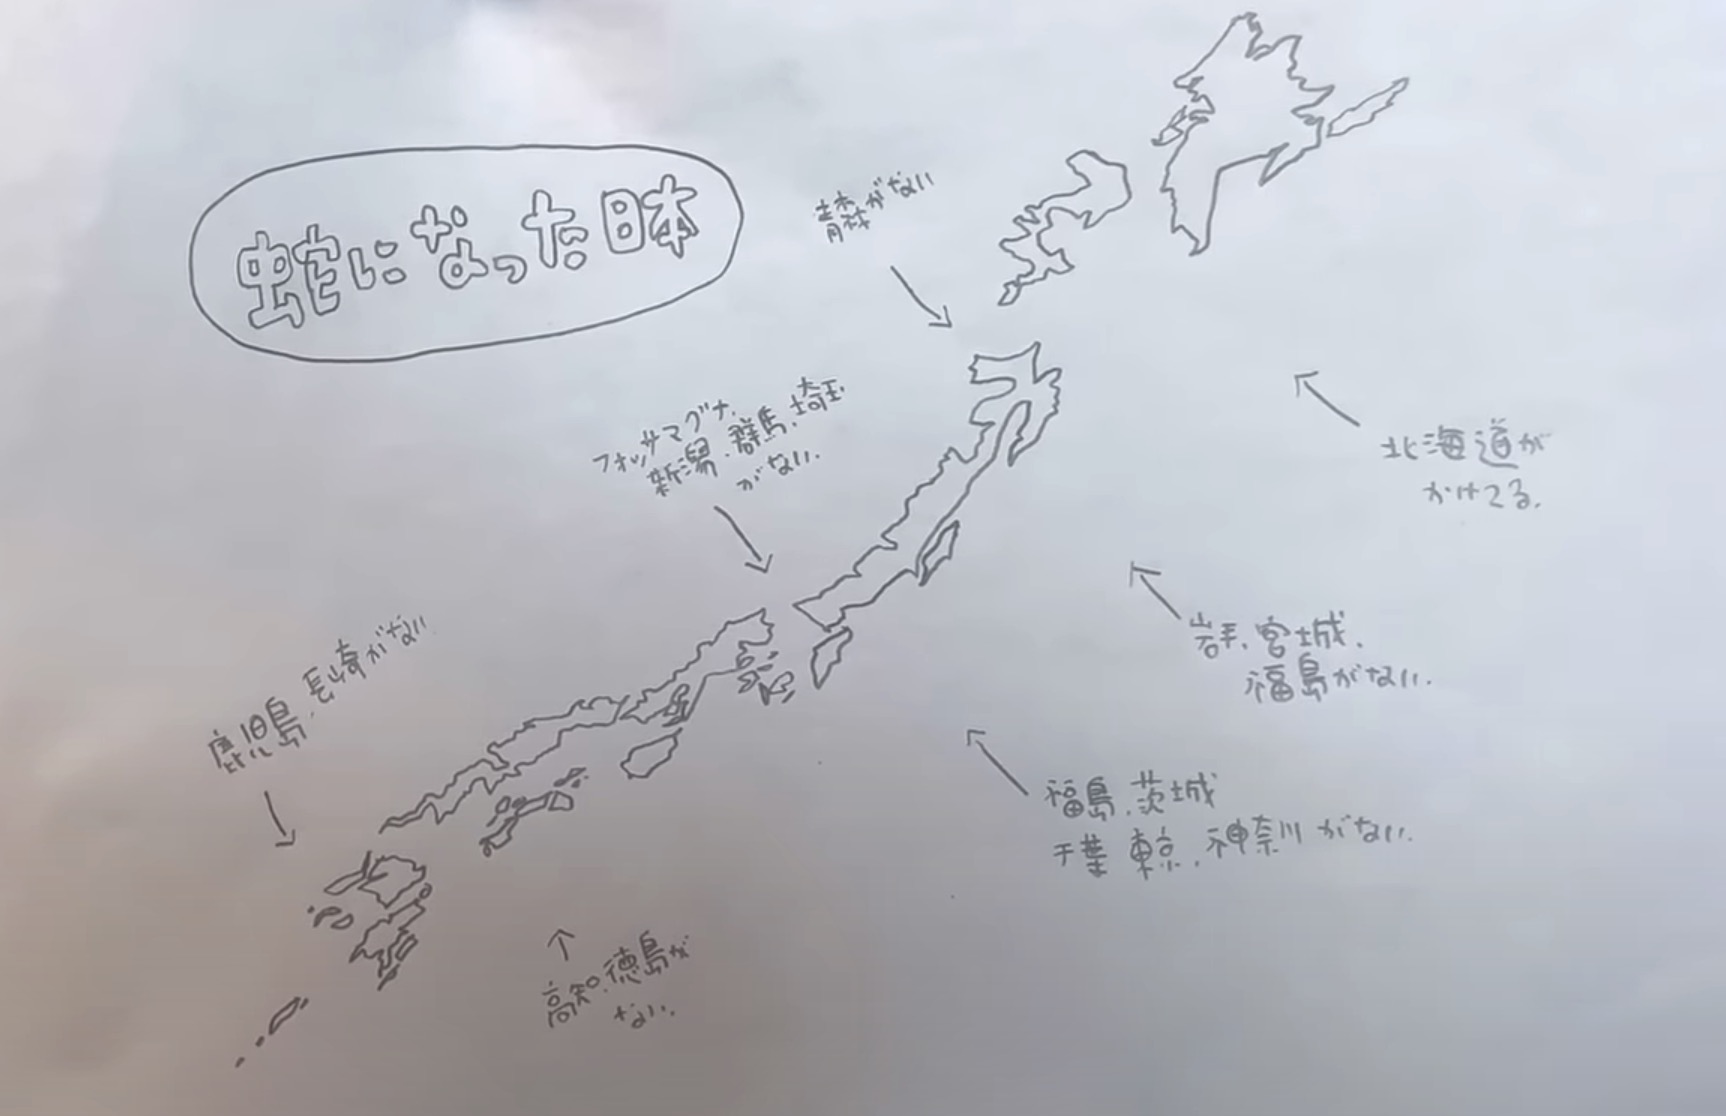 蛇になった日本
青森がない
フォッサマグナ.
新潟.群馬.埼玉
がない.
鹿児島.長崎がない
北海道が
かけてる.
岩手.宮城.
福島がない.
福島.茨城
千葉 東京.神奈川がない.
高知.徳島が
ない.